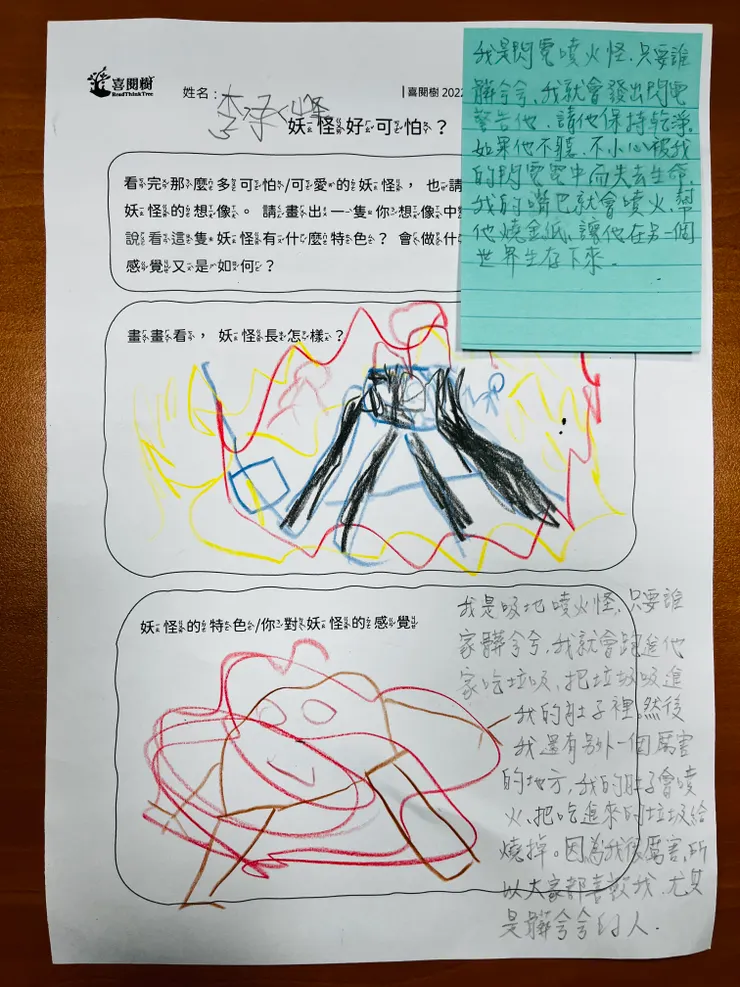 喜閱樹
ReadThinkTree
姓名：
喜閱樹 2022
妖怪好可怕？
看完那麼多可怕/可愛的妖怪，也請
妖怪的想像。請畫出一隻你想像中
說看這隻妖怪有什麼特色？會做什
感覺又是如何？
我是閃電噴火怪，只要誰
髒兮兮，我就會發出閃電
警告他，請他保持乾淨。
如果他不聽，不小心被我
的閃電電中而失去生命，
我的嘴巴就會噴火，幫
他燒金紙，讓他在另一個
世界生存下來。
畫畫看，妖怪長怎樣？
妖怪的特色/你對妖怪的感覺
我是吸地噴火怪，只要誰
家髒兮兮，我就會跑進他
家吃垃圾，把垃圾吸進
我的肚子裡。然後
我還有另外一個厲害
的地方，我的肚子會噴
火，把吃進來的垃圾給
燒掉。因為我很厲害，所
以大家都喜歡我，尤其
是髒兮兮的人。